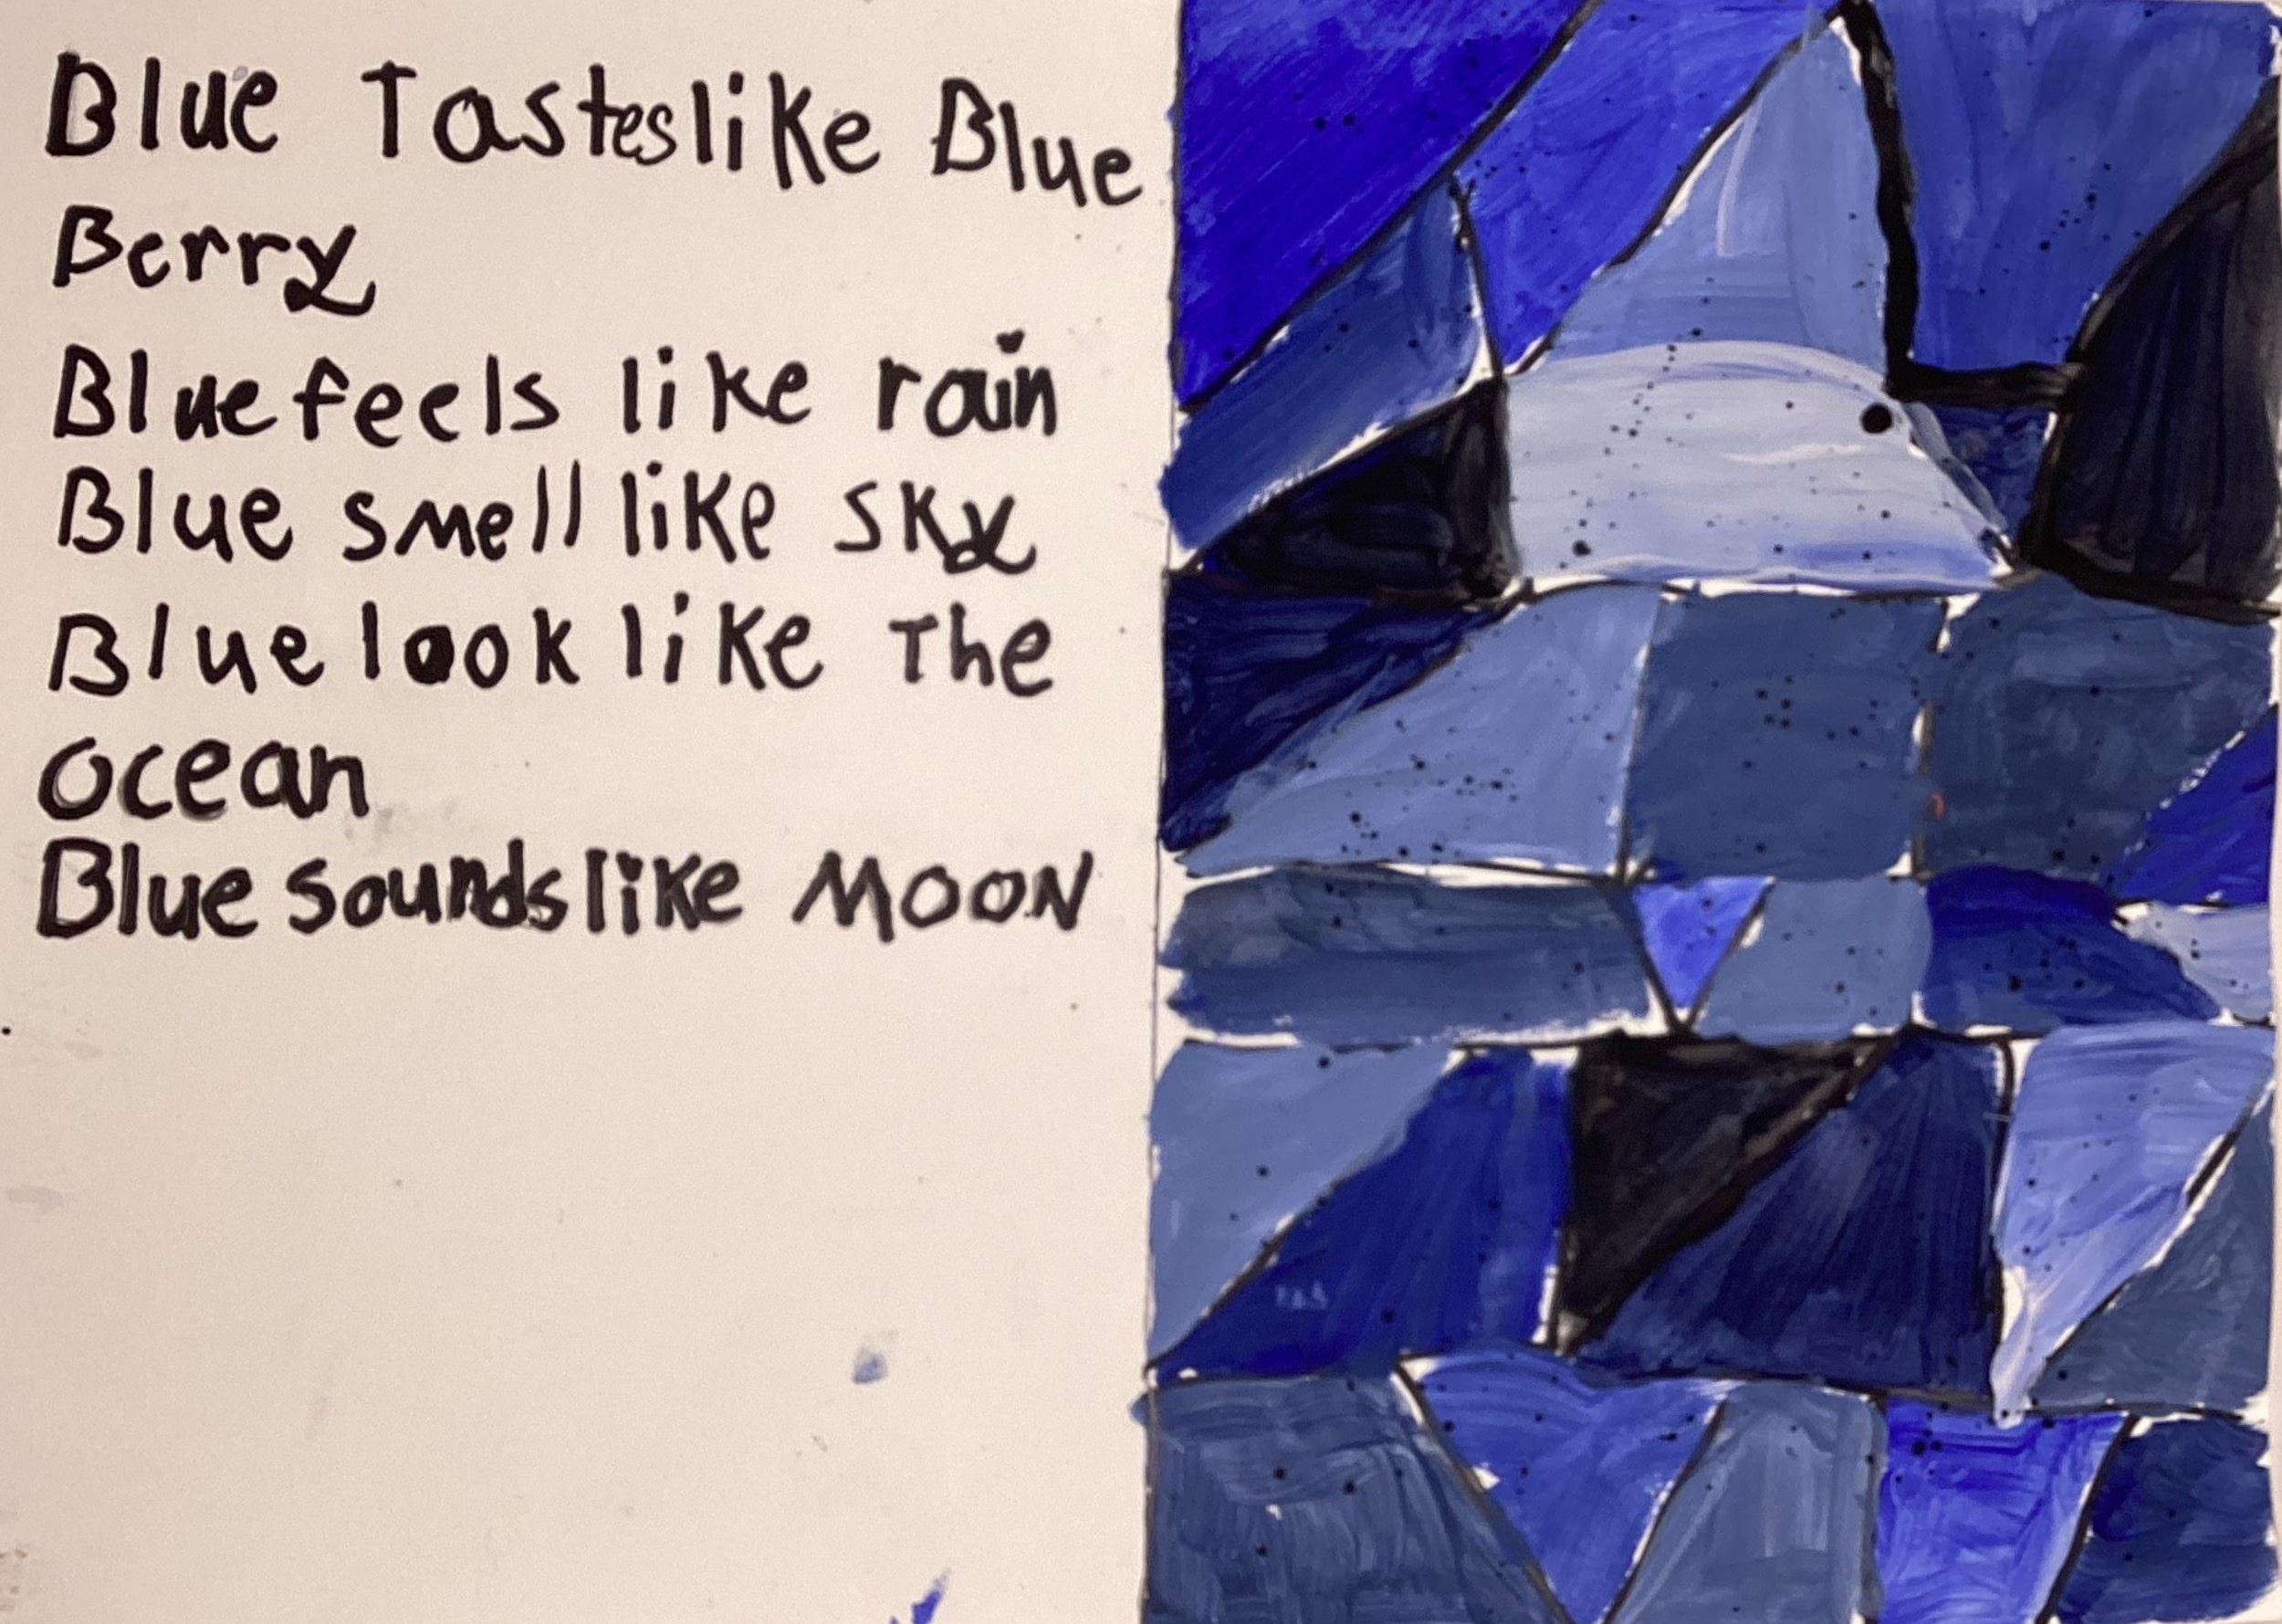 Blue Tastes like Blue
Berry
Blue feels like rain
Blue smell like sky
Blue look like The
ocean
Blue sounds like MOON